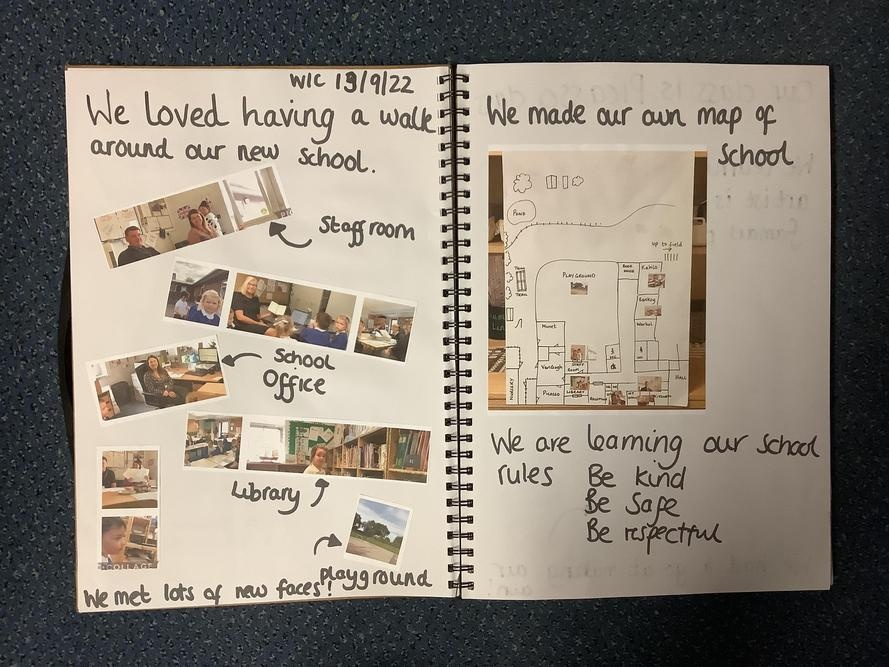 WIC 13/9/22
We loved having a walk
around our new school.
Staffroom
School
Office
Library
playground
We met lots of new faces!
COLLAGE
We made our own map of
School
POND
up to field
TRIM
TRAIL
PLAYGROUND
Kahlo
Banksy
Warhol
Monet
VanGogh
STAFF
ROOM
HALL
NURSERY
Picasso
LIBRARY
We are learning our school
rules Be kind
Be Safe
Be respectful